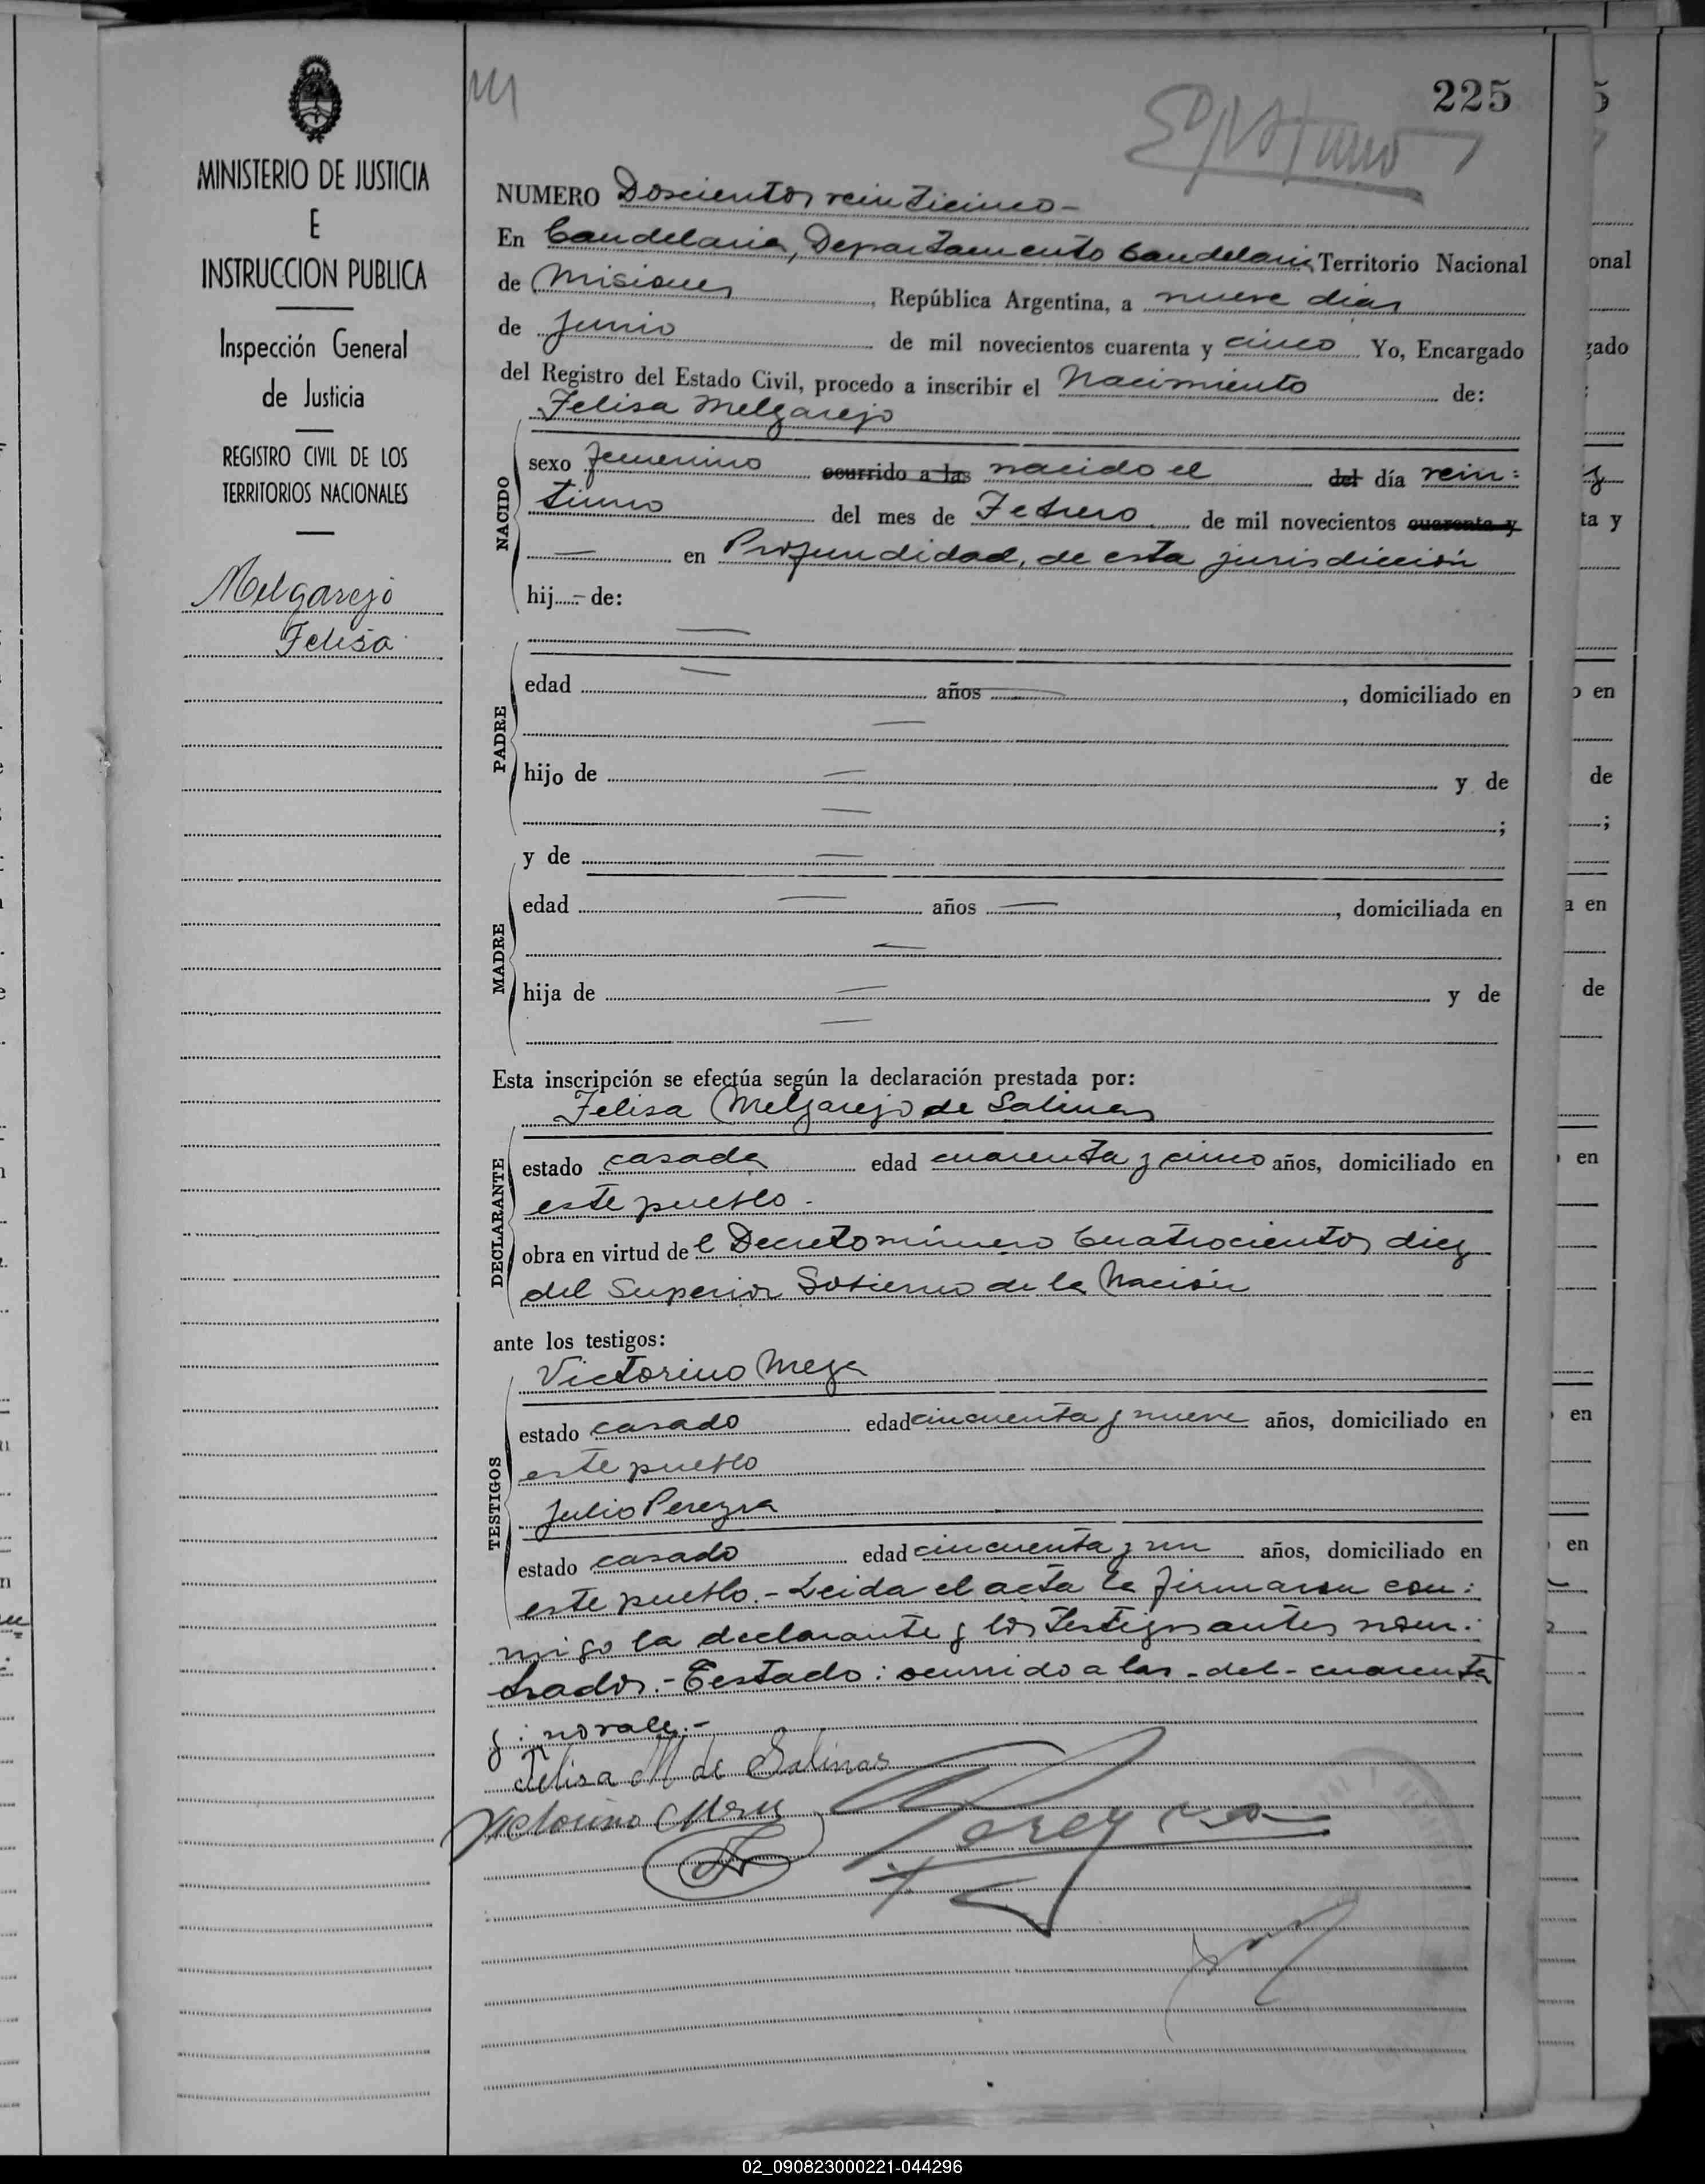 MINISTERIO DE JUSTICIA
E
INSTRUCCION PUBLICA
Inspección General
de Justicia
REGISTRO CIVIL DE LOS
TERRITORIOS NACIONALES
Melgarejo
Felisa
225
NUMERO Doscientos veinticinco-
En Candelaria, Departamento Candelaria Territorio Nacional
de Misiones, República Argentina, a nueve días
de Junio de mil novecientos cuarenta y cinco Yo, Encargado
del Registro del Estado Civil, procedo a inscribir el Nacimiento de:
Felisa Melgarejo
NACIDO
sexo femenino ocurrido a las nacido el del día vein=
tiuno del mes de Febrero de mil novecientos cuarenta y
— en Profundidad, de esta jurisdicción
hij - de:
—
PADRE
edad — años —, domiciliado en
—
hijo de — y de
— ;
MADRE
y de —
edad — años —, domiciliada en
—
hija de — y de
—
Esta inscripción se efectúa según la declaración prestada por:
Felisa Melgarejo de Salinas
DECLARANTE
estado casada edad cuarenta y cinco años, domiciliado en
este pueblo.
obra en virtud de l Decreto número Cuatrocientos diez
del Superior Gobierno de la Nación
ante los testigos:
Victorino Meza
TESTIGOS
estado casado edad cincuenta y nueve años, domiciliado en
este pueblo
Julio Pereyra
estado casado edad cincuenta y un años, domiciliado en
este pueblo.- Leida el acta la firmaron con:
migo la declarante y los testigos antes nom:
brados.- Testado: ocurrido a las - del - cuarenta
y: no vale.-
Felisa M de Salinas
Victorino Meza
Pereyra
onal
gado
ta y
o en
de
;
a en
de
en
en
en
02_090823000221-044296